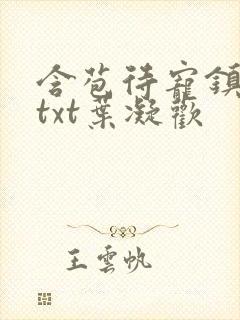 含苞待寵鎮
txt葉凝歡
王雲帆